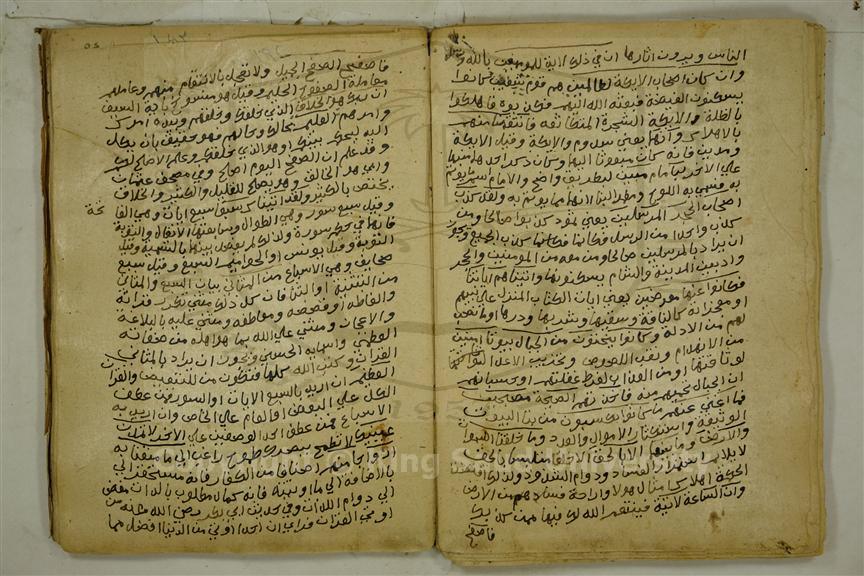 الناس ويرون آثارها ان في ذلك لاية للمومنين بالله ورسله
وان كان اصحاب الايكة لظالمين هم قوم شعيب كانوا
يسكنون الغيضة فبعثه الله اليهم فكذبوه فاهلكوا
بالظلة والايكة الشجرة المتكاثفة فانتقمنا منهم
بالاهلاك وانهما يعني سدوم والايكة وقيل الايكة
ومدين فانه كان مبعوثا اليهما وكان ذكر احداهما منبها
علي الاخري لبامام مبين لبطريق واضح والامام اسم ما يوتم
به فسمي به اللوح ومطمر البنا لانهما مما يوتم به ولقد كذب
اصحاب الحجر المرسلين يعني ثمود كذبوا صالحا ومن
كذب واحدا من الرسل فكانما كذب الجميع ويجوز
ان يراد بالمرسلين صالحا ومن معه من المومنين والحجر
واد بين المدينة والشام يسكنونها واتيناهم اياتنا
فكانوا عنها معرضين يعني ايات الكتاب المنزل علي نبيهم
او معجزاته كالناقة وسقيها وشربها ودرها او ما نصب
لهم من الادلة وكانوا ينحتون من الجبال بيوتا امنين
من الانهدام ونقب اللصوص وتخريب الاعدا
لوثاقتها او من العذاب لفرط غفلتهم او حسبانهم
ان الجبال تحميهم منه فاخذتهم الصيحة مصبحين
فما اغني عنهم ما كانوا يكسبون من بنا البيوت
الوثيقة واستكثار الاموال والعدد وما خلقنا السموات
والارض وما بينهما الا بالحق الا خلقا ملتبسا بالحق
لا يلايم استمرار الفساد ودوام الشرور ولذلك اقتضت
الحكمة اهلاك امثال هولا وازاحة فسادهم من الارض
وان الساعة لاتية فينتقم الله لك فيها ممن كذبك
فاصفح
فاصفح الصفح الجميل ولا تعجل بالانتقام منهم وعاملهم
معاملة الصفوح الحليم وقيل هو منسوخ باية السيف
ان ربك هو الخلاق الذي خلقك وخلقهم وبيده امرك
وامرهم العليم بحالك وحالهم فهو حقيق بان تكل
اليه ليحكم بينكم او هو الذي خلقكم وعلم الاصلح لكم
وقد علم ان الصفح اليوم اصلح وفي مصحف عثمان
وابي هو الخالق وهو يصلح للقليل والكثير والخلاق
يختص بالكثير ولقد اتيناك سبعا سبع ايات وهي الفا
تحة
وقيل سبع سور وهي الطوال وسابعتها الانفال والتوبة
فانهما في حكم سورة ولذلك لم يفصل بينهما بالتسمية وقيل
التوبة وقيل يونس او الحواميم السبع وقيل سبع
صحايف وهي الاسباع من المثاني بيان للسبع والمثاني
من التثنية او الثنا فان كل ذلك مثني تكرر قراته
والفاظه او قصصه ومواعظه ومثني عليه بالبلاغة
والاعجاز ومثني علي الله بما هو اهله من صفاته
العظمي واسمايه الحسني ويجوز ان يراد بالمثاني
القران وكتب الله كلها فتكون من للتبعيض والقران
العظيم ان اريد بالسبع الايات او السور فمن عطف
الكل علي البعض او العام علي الخاص وان اريد به
الاسباع فمن عطف احد الوصفين علي الاخر لا تمدن
عينيك لا تطمح ببصرك طموح راغب الي ما متعنا به
ازواجا منهم اصنافا من الكفار فانه مستحقر
بالاضافة الي ما اوتيته فانه كمال مطلوب بالذات مفض
الي دوام اللذات وفي حديث ابي بكر رضي الله عنه من
اوتي القران فراي ان احدا اوتي من الدنيا افضل مما